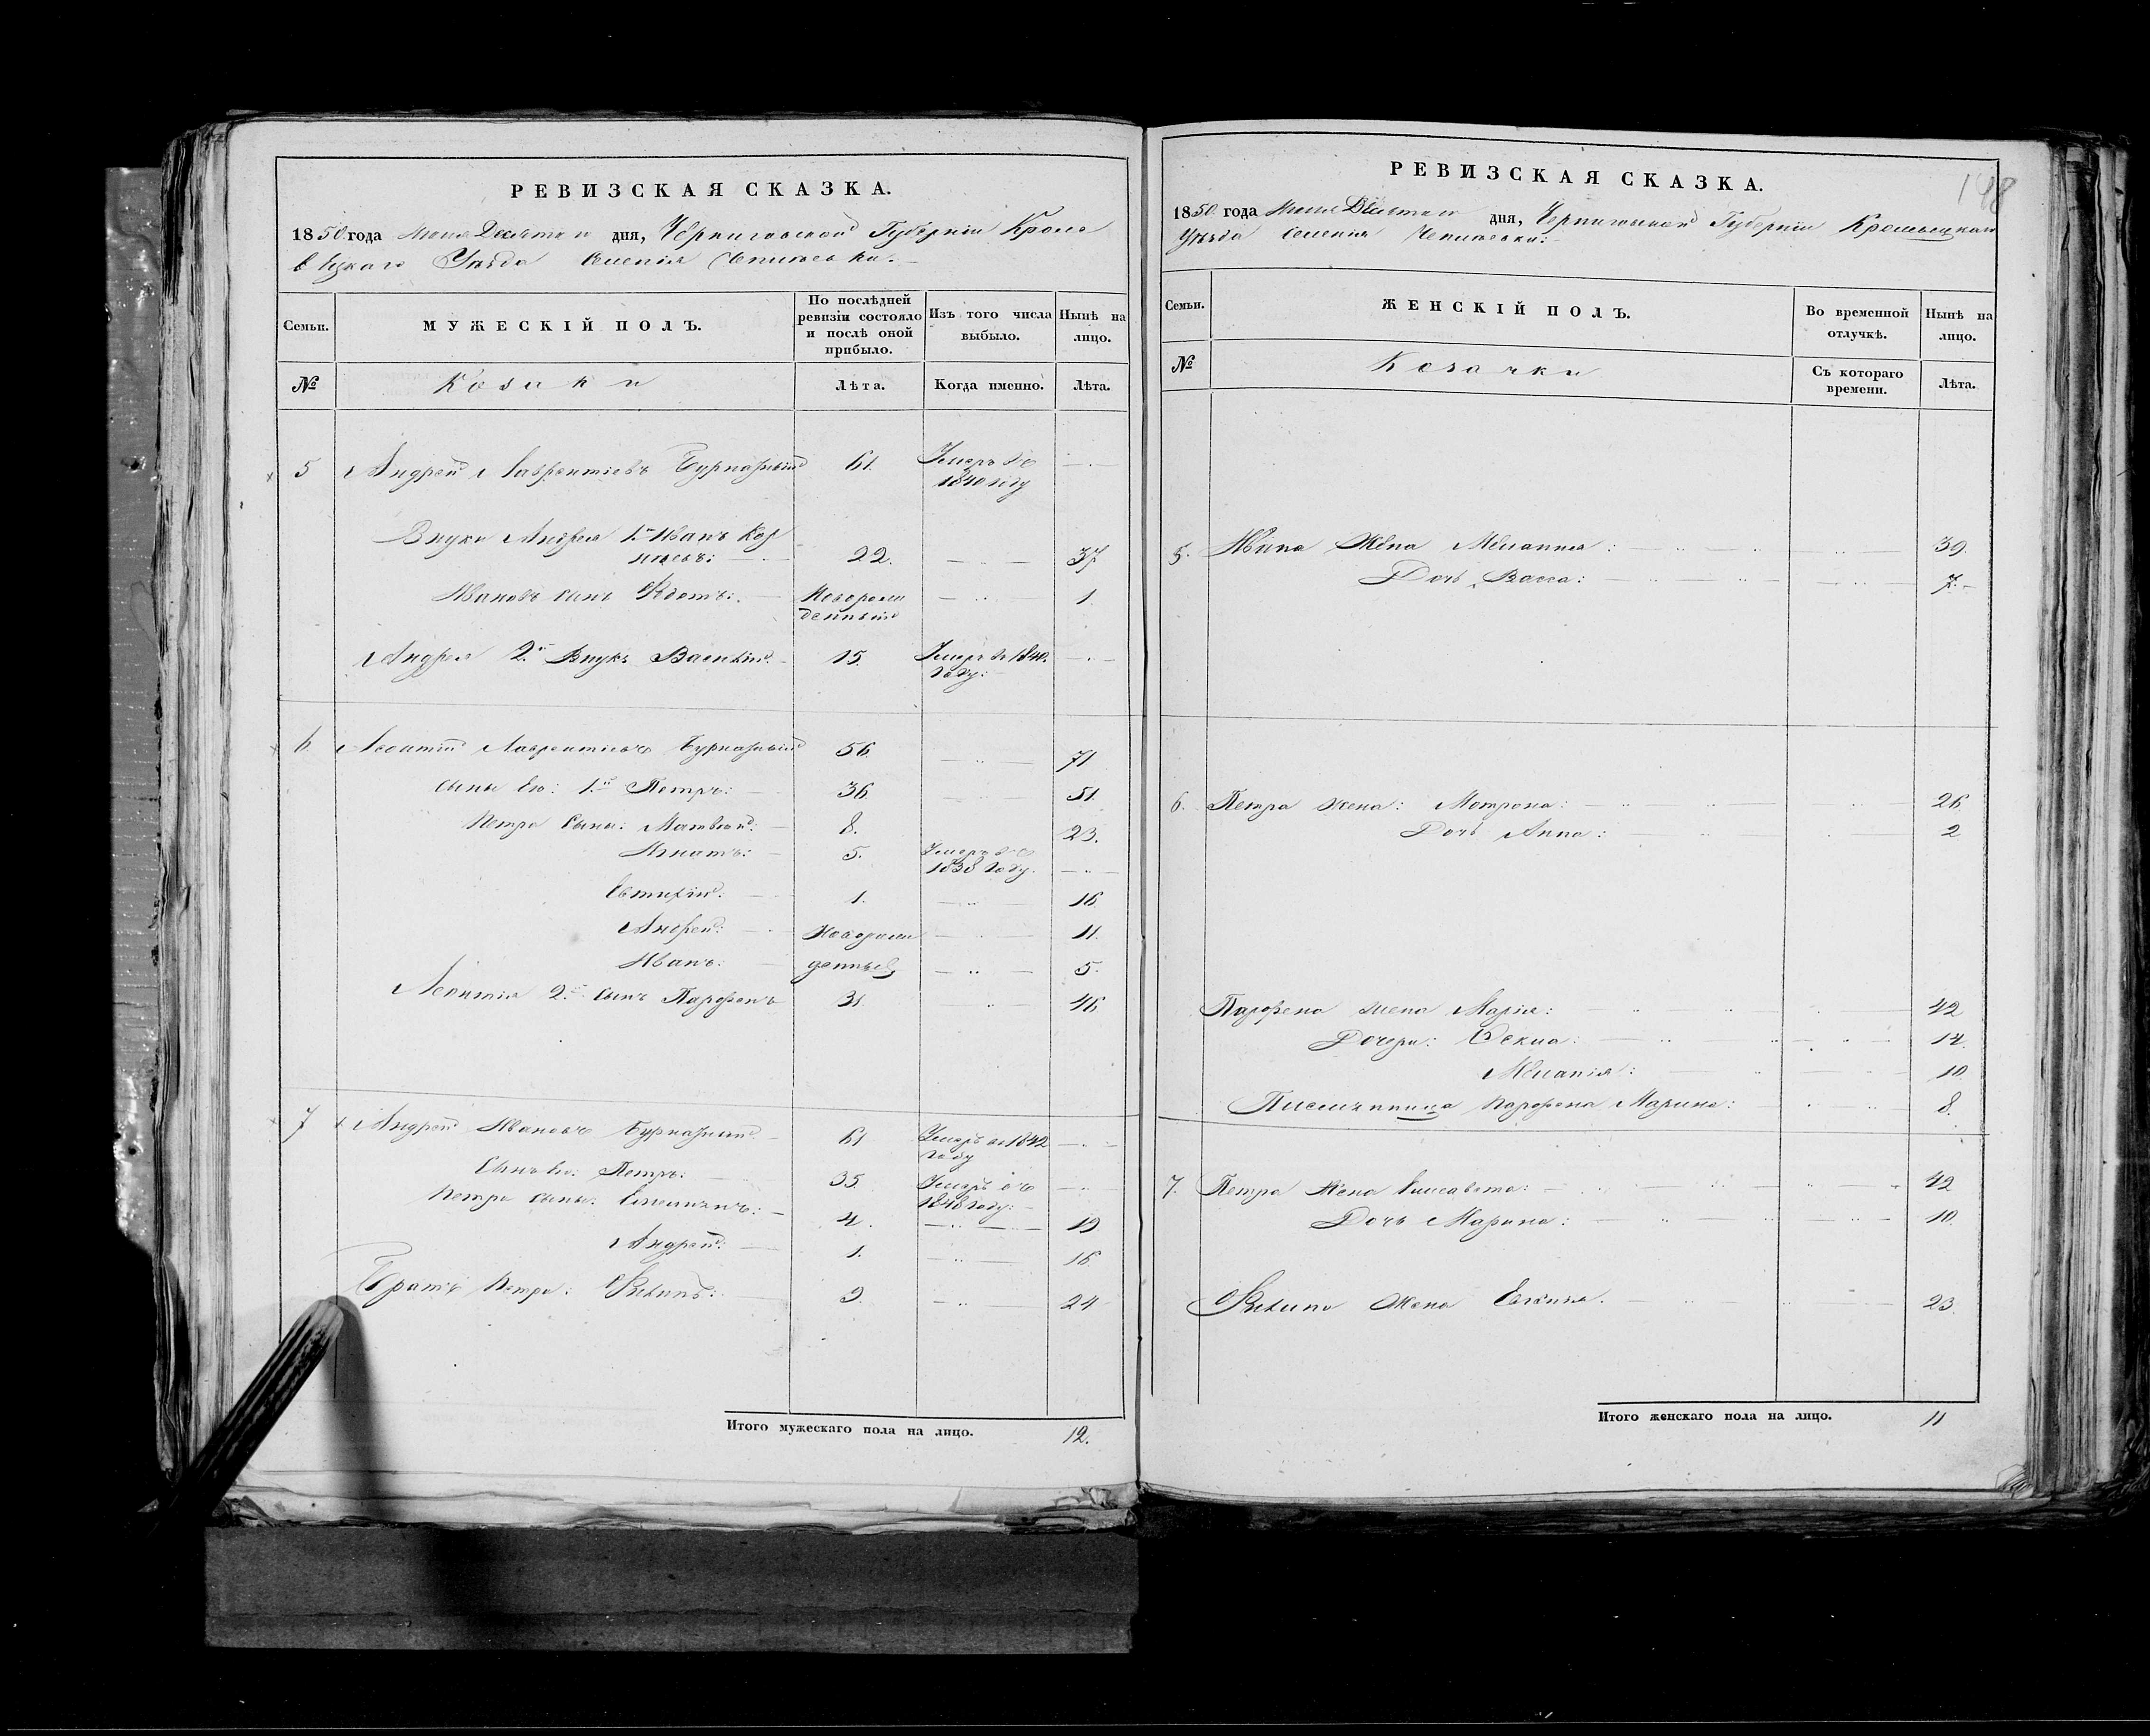 РЕВИЗСКАЯ СКАЗКА.
1850 года Маія Десятаго дня, Черниговской Губерніи Кроле
вецкаго Уезда Селенія
Семьи.
МУЖЕСКІЙ ПОЛЪ.
По послѣдней ревизіи состояло и послѣ оной прибыло.
Изъ того числа выбыло.
Нынѣ на лицо.
№
Козаки
Лѣта.
Когда именно.
Лѣта.
5 Андрей Лаврентіевъ 61. Умеръ въ
1840 году
Внуки Андрея 1й Иванъ Кор
нѣевъ: 22. 37
Ивановъ сынъ Федотъ: Новорож
денный 1.
Андрея 2й Внукъ Василій. 15. Умеръ въ 1840.
году:
6 Леонтій Лаврентіевъ 56. 71
Сыны Его: 1й Петръ: 36 51.
Петра Сыны: Матвѣй: 8. 23.
Игнатъ: 5. Умеръ въ
1838 году.
Евтихій: 1. 16
Андрей: Новорож 11.
Иванъ: денные 5.
Леонтія 2й Сынъ Парфенъ 31 46
7 Андрей Ивановъ 61 Умеръ въ 1842
году
Сынъ Его: Петръ: 35. Умеръ въ
1848 году:
Петра сыны: 4. 19
Андрей: 1. 16
Братъ Петра: 9. 24
Итого мужескаго пола на лицо. 12.
148
РЕВИЗСКАЯ СКАЗКА.
1850 года Маія Десятаго дня, Черниговской Губерніи Кролевецкаго
Уѣзда Селенія
Семьи.
ЖЕНСКІЙ ПОЛЪ.
Во временной отлучкѣ.
Нынѣ на лицо.
№
Козачки
Съ котораго времени.
Лѣта.
5. Ивана Жена Меланія: 39.
Дочь Васса: 7.
6. Петра жена: Мотрона: 26
Дочь Анна: 2
Парфена жена Марія: 42
Дочери: 14.
Меланія: 10
Парфена Марина: 8.
7. Петра Жена Елисавета: 42
Дочь Марина: 10.
Жена 23.
Итого женскаго пола на лицо. 11